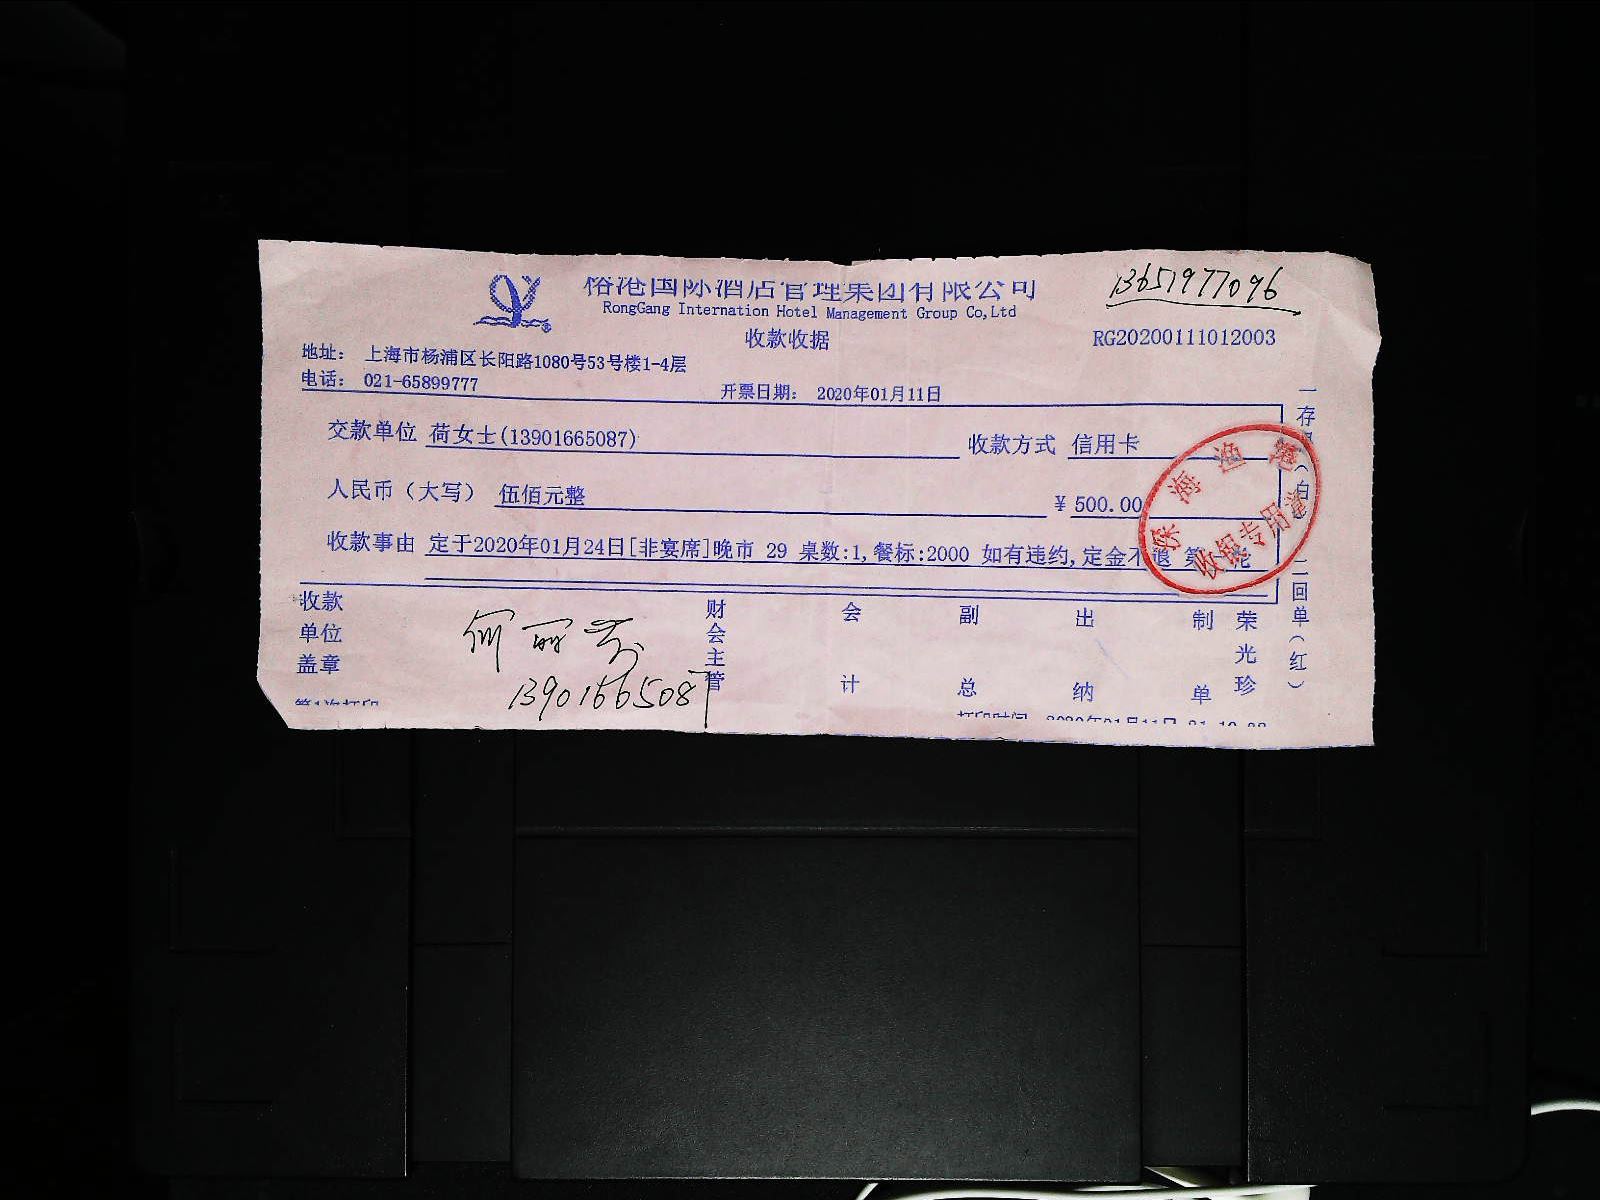 榕港国际酒店管理集团有限公司
RongGang Internation Hotel Management Group Co,Ltd
13651977096
收款收据
RG20200111012003
地址： 上海市杨浦区长阳路1080号53号楼1-4层
电话： 021-65899777
开票日期： 2020年01月11日
交款单位 荷女士(13901665087)
收款方式 信用卡
人民币（大写） 伍佰元整
¥ 500.00
收款事由 定于2020年01月24日[非宴席]晚市 29 桌数:1,餐标:2000 如有违约,定金不退
海渔港
收银专用章
一存（白）
二回单（红）
收款单位盖章
何丽
13901665087
财会主管
会计
副总
出纳
制单
荣光珍
第1次打印
打印时间 2020年01月11日